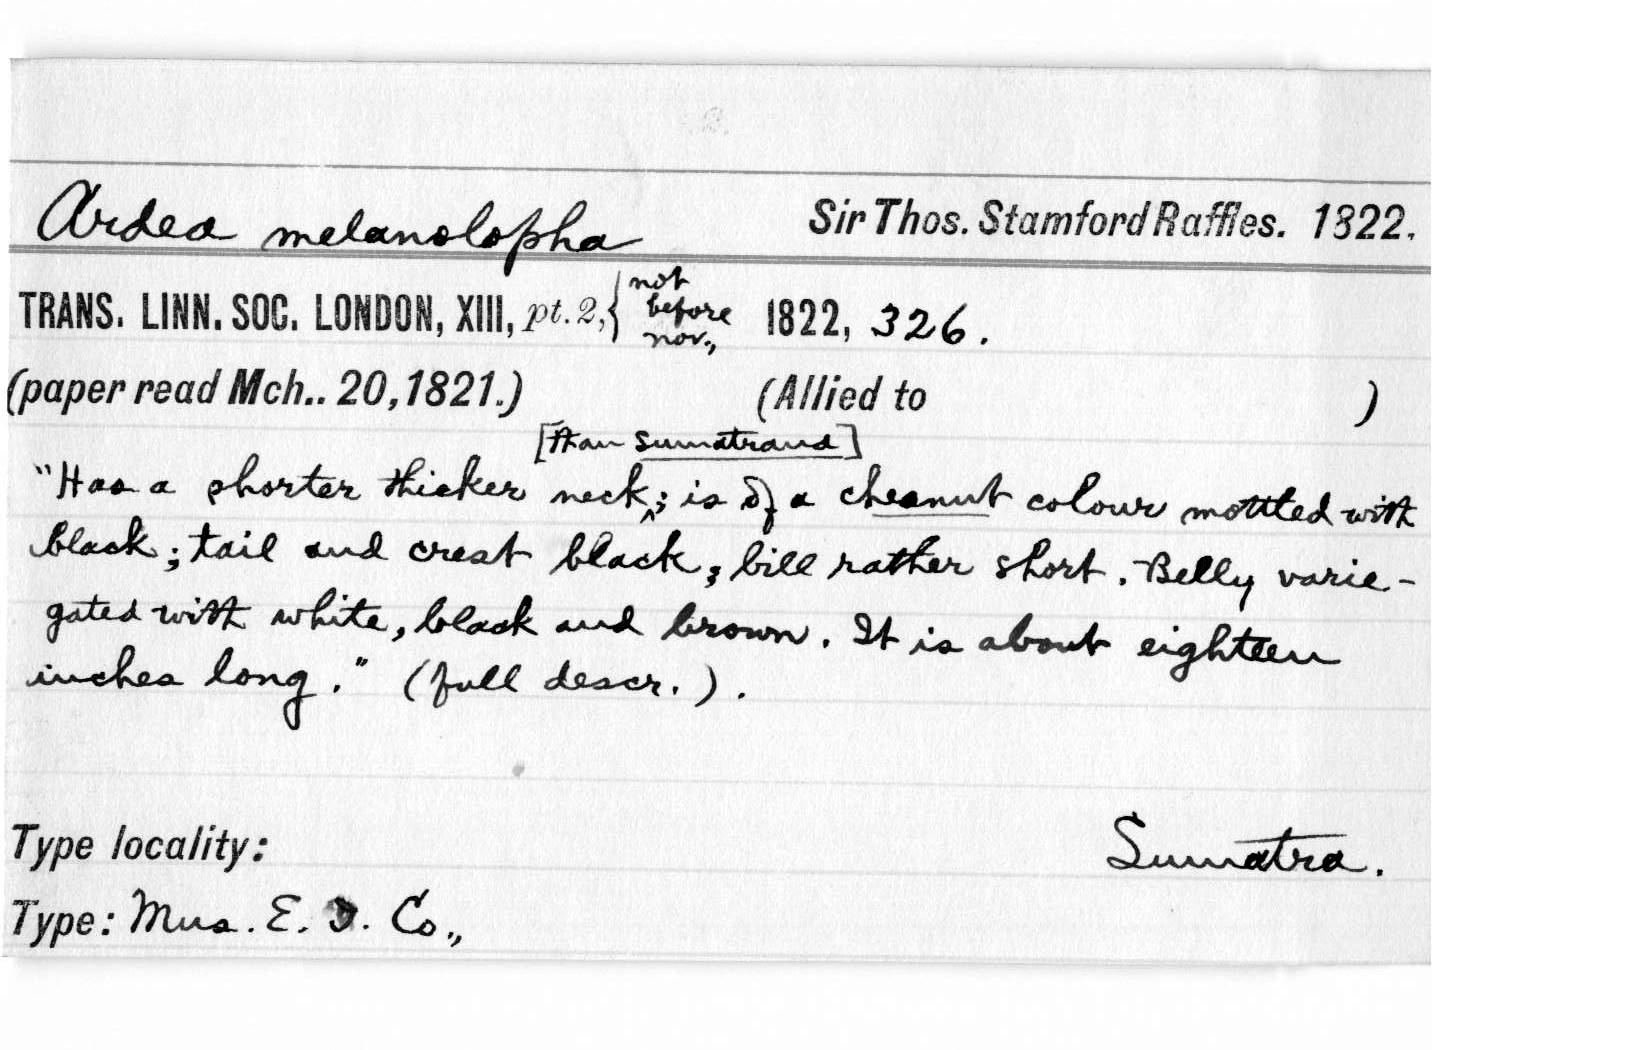 Ardea melanolopha Sir Thos. Stamford Raffles. 1822.
TRANS. LINN. SOC. LONDON, XIII, pt. 2, { not before nov., 1822, 326.
(paper read Mch.. 20, 1821.) (Allied to )
[than sumatrana]
"Has a shorter thicker neck‸; is of a chesnut colour mottled with
black; tail and crest black; bill rather short. Belly varie-
gated with white, black and brown. It is about eighteen
inches long." (full descr.).
Type locality: Sumatra.
Type: Mus. E. I. Co.,